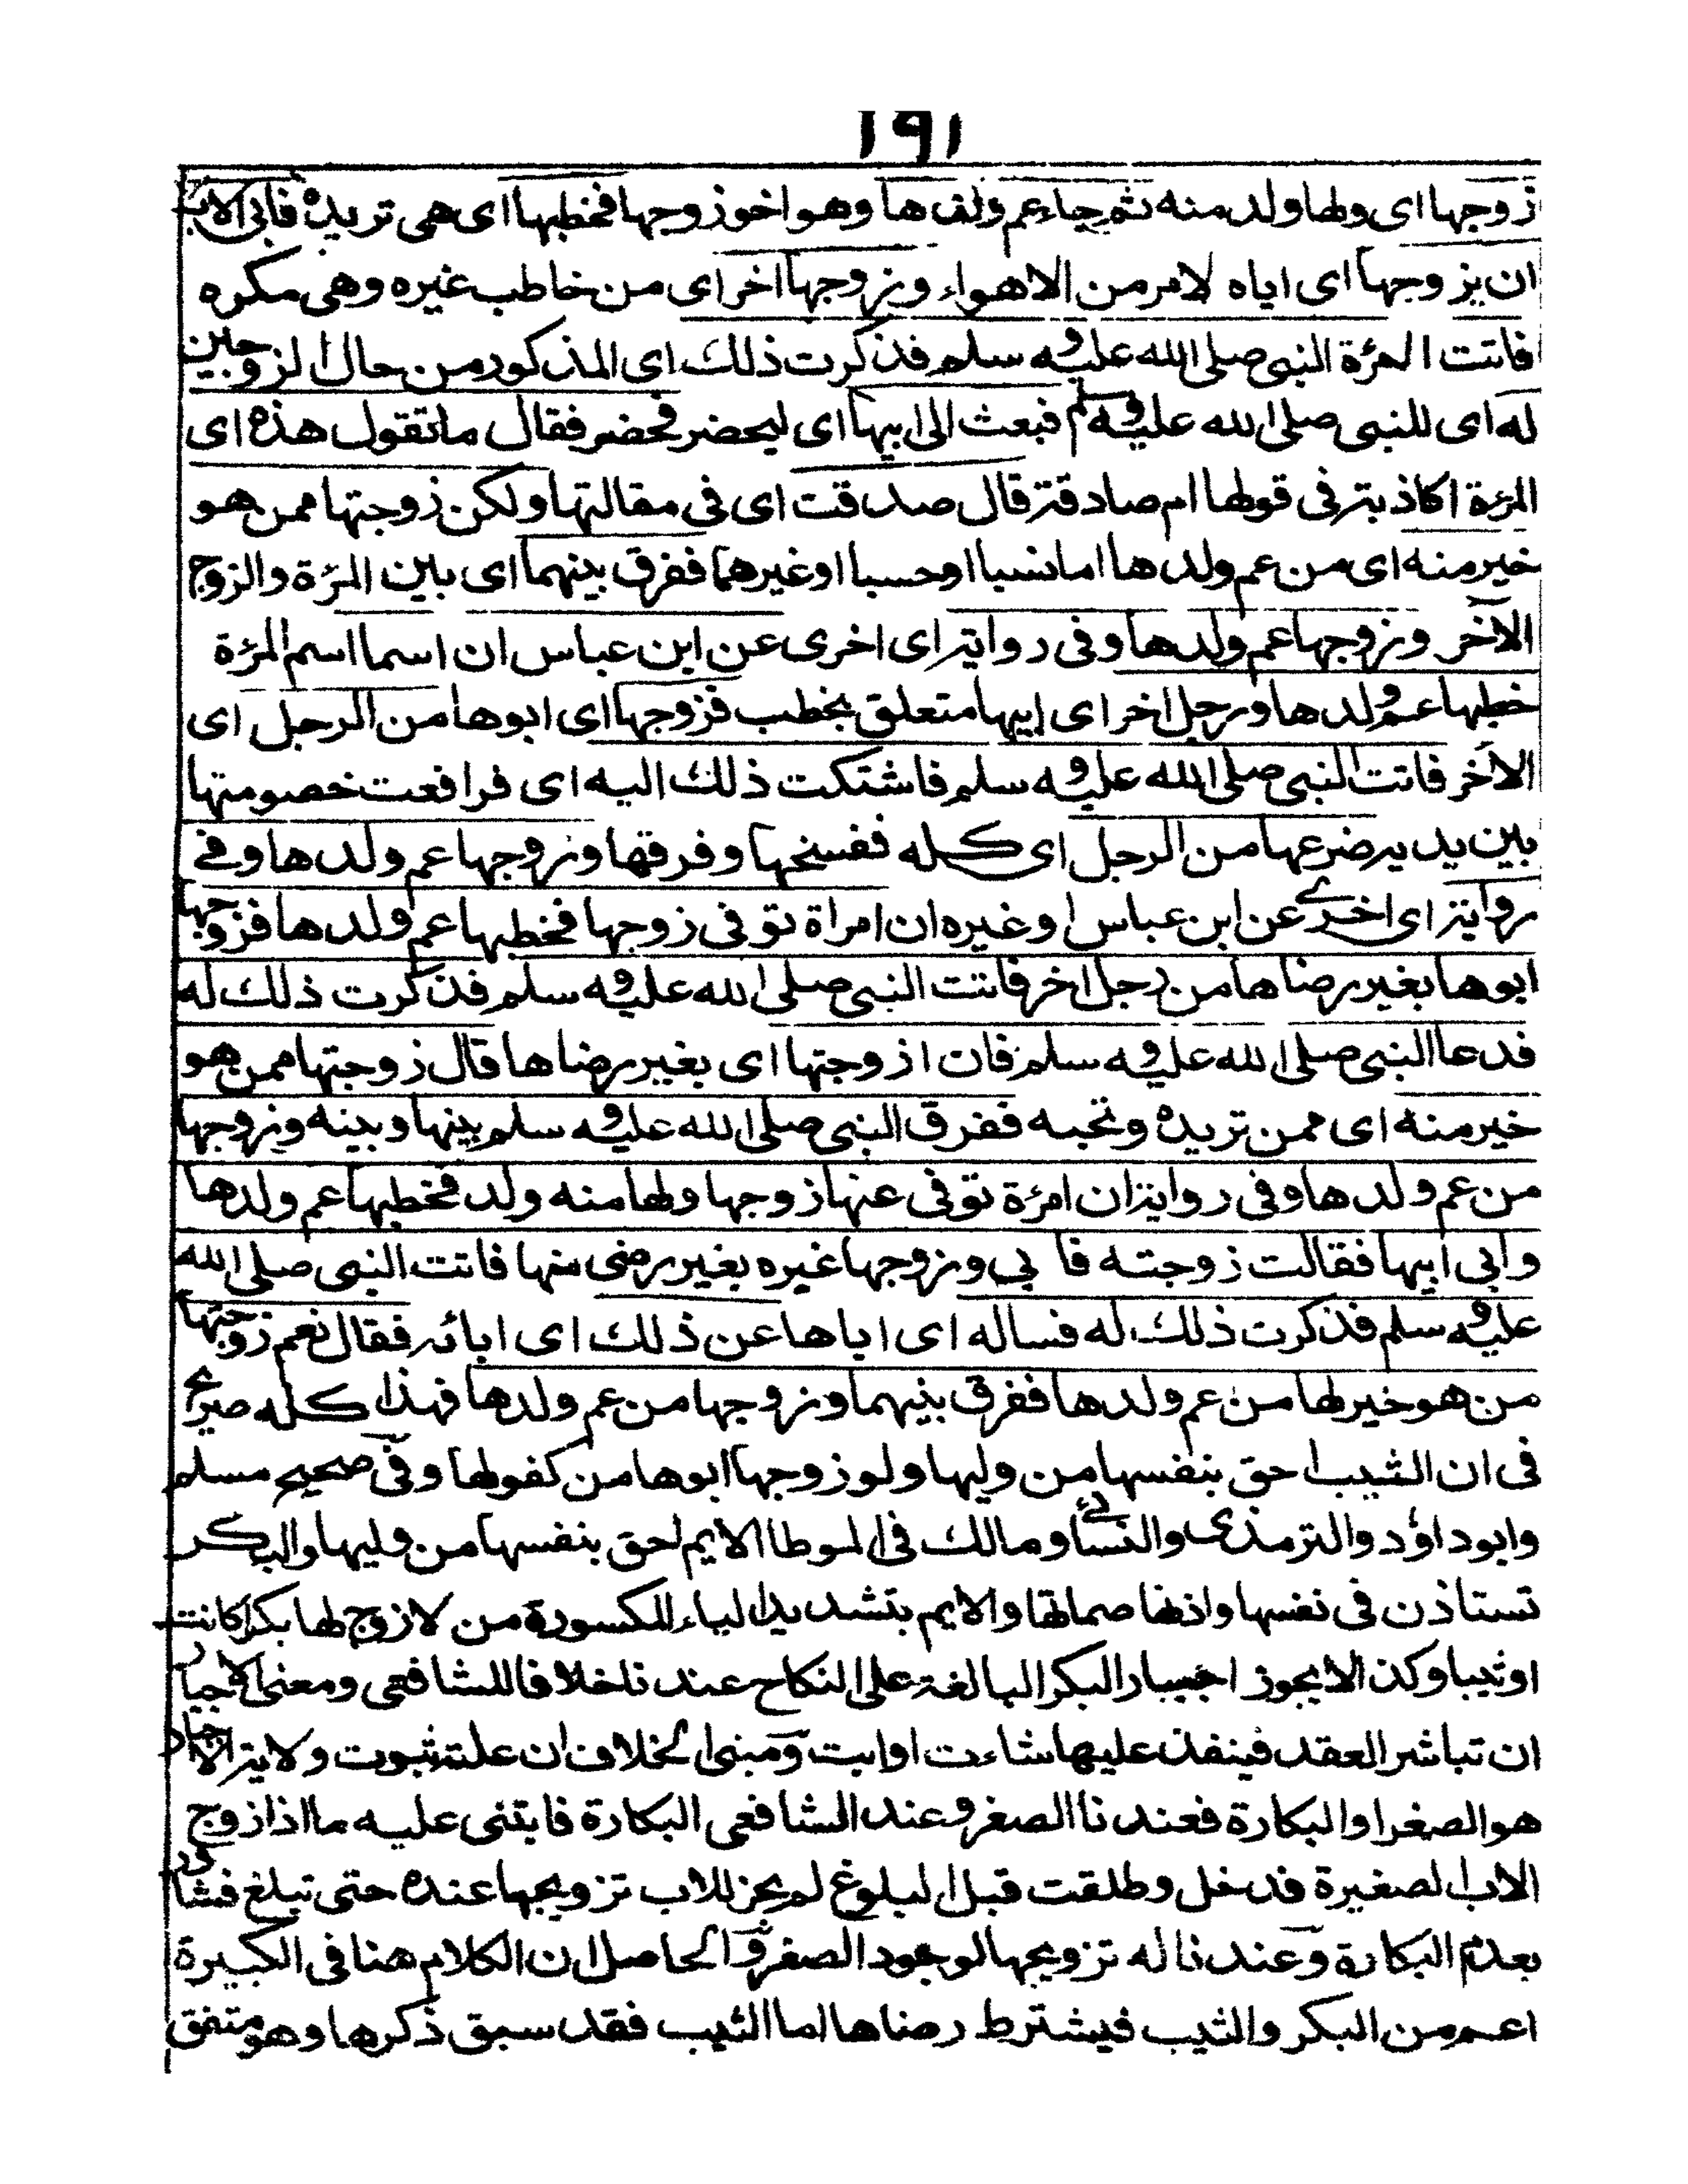 ١٩١
زوجها اى ولها ولد منه ثم جاء عم ولدها وهو اخو زوجها فخطبها اى هى تريده فابى الاب
ان يزوجها اى اياه لامر من الاهواء وزوجها اخر اى من خاطب غيره وهى مكره
فاتت المرٔة النبى صلى الله عليه وسلم فذكرت ذلك اى المذكور من حال الزوجين
له اى للنبى صلى الله عليه وسلم فبعث الى ابيها اى ليحضر فحضر فقال ما تقول هذه اى
المرٔة اكاذبة فى قولها ام صادقة قال صدقت اى فى مقالتها ولكن زوجتها ممن هو
خير منه اى من عم ولدها اما نسبا او حسبا او غيرهما ففرق بينهما اى بين المرٔة والزوج
الآخر وزوجها عم ولدها وفى رواية اى اخرى عن ابن عباس ان اسما اسم المرٔة
خطبها عم ولدها ورجل اخر اى ابيها متعلق بخطب فزوجها اى ابوها من الرجل اى
الآخر فاتت النبى صلى الله عليه وسلم فاشتكت ذلك اليه اى فرافعت خصومتها
بين يديه ضرعها من الرجل اى كله ففسخها وفرقها وزوجها عم ولدها وفے
رواية اى اخرے عن ابن عباس او غيره ان امراة توفى زوجها فخطبها عم ولدها فزوجها
ابوها بغير رضاها من رجل اخر فاتت النبى صلى الله عليه وسلم فذكرت ذلك له
فدعا النبى صلى الله عليه وسلم فان ازوجتها اى بغير رضاها قال زوجتها ممن هو
خير منه اى ممن تريده وتحبه ففرق النبى صلى الله عليه وسلم بينها وبينه وزوجها
من عم ولدها وفى رواية ان امرٔة توفى عنها زوجها ولها منه ولد فخطبها عم ولدها
وابى ابيها فقالت زوجته فابي وزوجها غيره بغير رضى منها فاتت النبى صلى الله
عليه وسلم فذكرت ذلك له فساله اى اباها عن ذلك اى ابائه فقال نعم زوجتها
من هو خير لها من عم ولدها ففرق بينهما وزوجها من عم ولدها فهذا كله صريح
فى ان الثيب احق بنفسها من وليها ولو زوجها ابوها من كفولها وفى صحيح مسلم
وابوداؤد والترمذى والنسائے ومالك فى الموطا الايم احق بنفسها من وليها والبكر
تستاذن فى نفسها واذنها صماتها والايم بتشديد الياء المكسورة من لا زوج لها بكرا كانت
او ثيبا وكذا لا يجوز اجبار البكر البالغة على النكاح عندنا خلافا للشافعى ومعنى الاجبار
ان تباشر العقد فينفذ عليها شاءت او ابت ومبنى الخلاف ان علة ثبوت ولاية الاجبار
هو الصغر او البكارة فعندنا الصغر وعند الشافعى البكارة فابتنى عليه ما اذا زوج
الاب الصغيرة فدخل وطلقت قبل البلوغ لم يجز للاب تزويجها عنده حتى تبلغ فتشاور
بعدم البكارة وعندنا له تزويجها لوجود الصغر والحاصل ان الكلام هنا فى الكبيرة
اعم من البكر والثيب فيشترط رضاها اما الثيب فقد سبق ذكرها وهو متفق